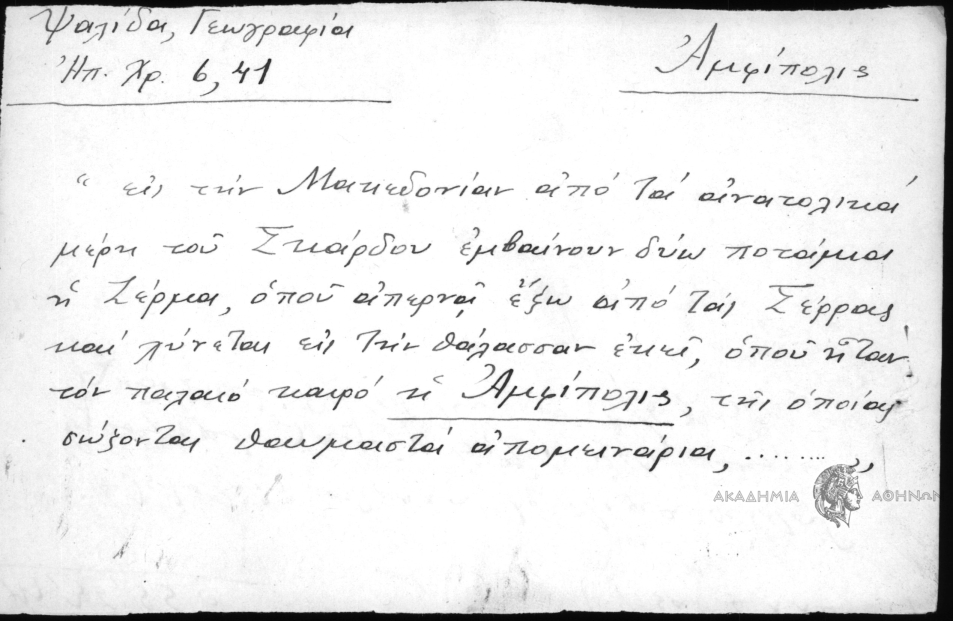 Ψαλίδα, Γεωγραφία
Ἠπ. Χρ. 6, 41
Ἀμφίπολις
“ εἰς τὴν Μακεδονίαν ἀπό τά ἀνατολικά
μέρη τοῦ Σκάρδου ἐμβαίνουν δύω ποτάμια
ἡ Ζέρμα, ὁποῦ ἀπερνᾷ ἔξω ἀπό τάς Σέρρας
καί λύνεται εἰς τὴν θάλασσαν ἐκεῖ, ὁποῦ ἦταν
τόν παλαιό καιρό ἡ Ἀμφίπολις, τῆς ὁποίας
σώζονται θαυμαστά ἀπομεινάρια, ........ ,,
ΑΚΑΔΗΜΙΑ ΑΘΗΝΩΝ